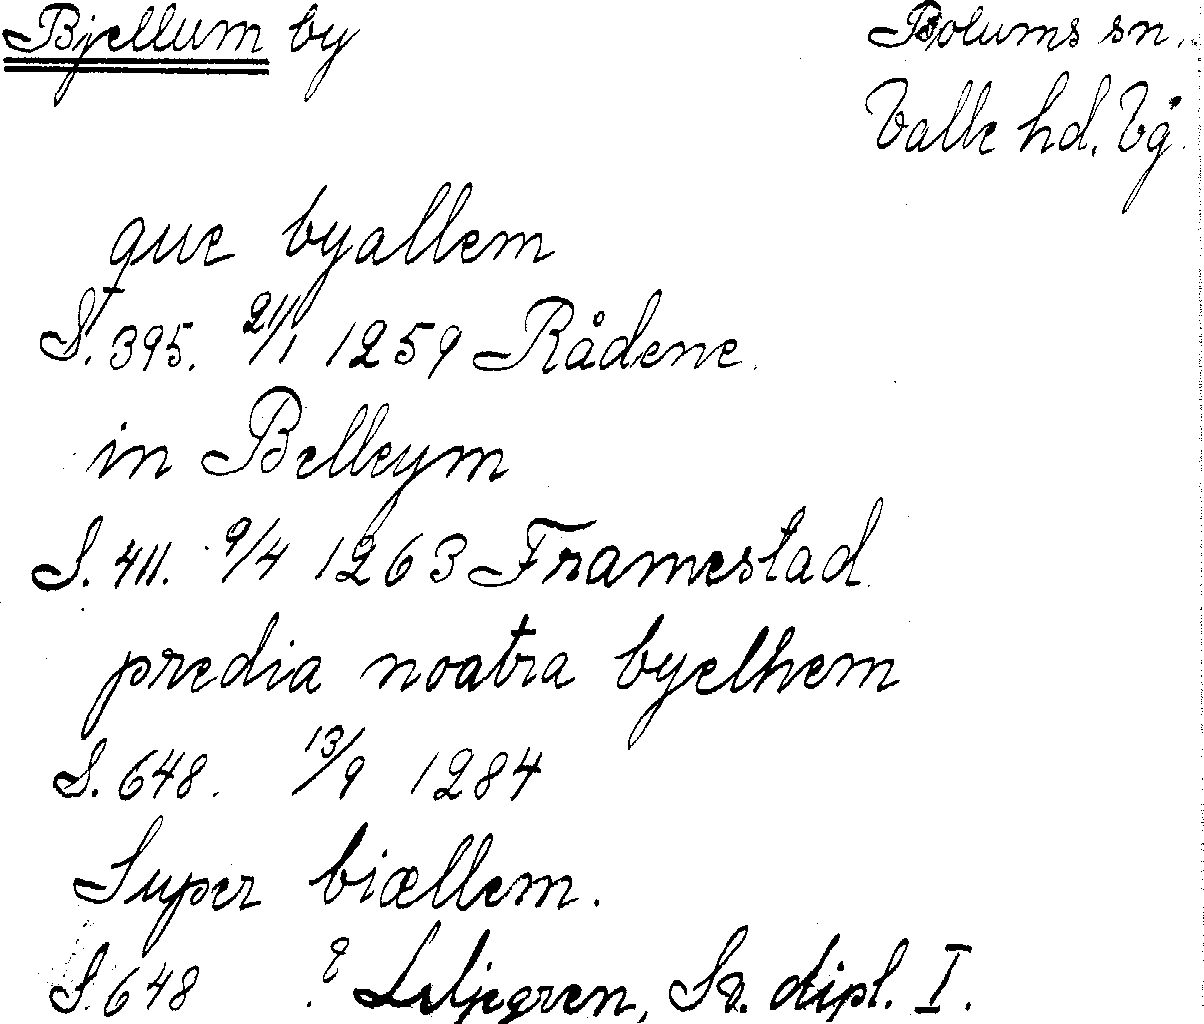 Bjellum by
Bolums sn.
Valle hd. Vg.
que byallem
S. 395. 21/1 1259 Rådene.
in Belleym
S. 411. 9/4 1263 Framestad
predia noatra byelhem
S. 648. 13/9 1284
Super biællem.
S. 648 Liljegren, Sv. dipl. I.